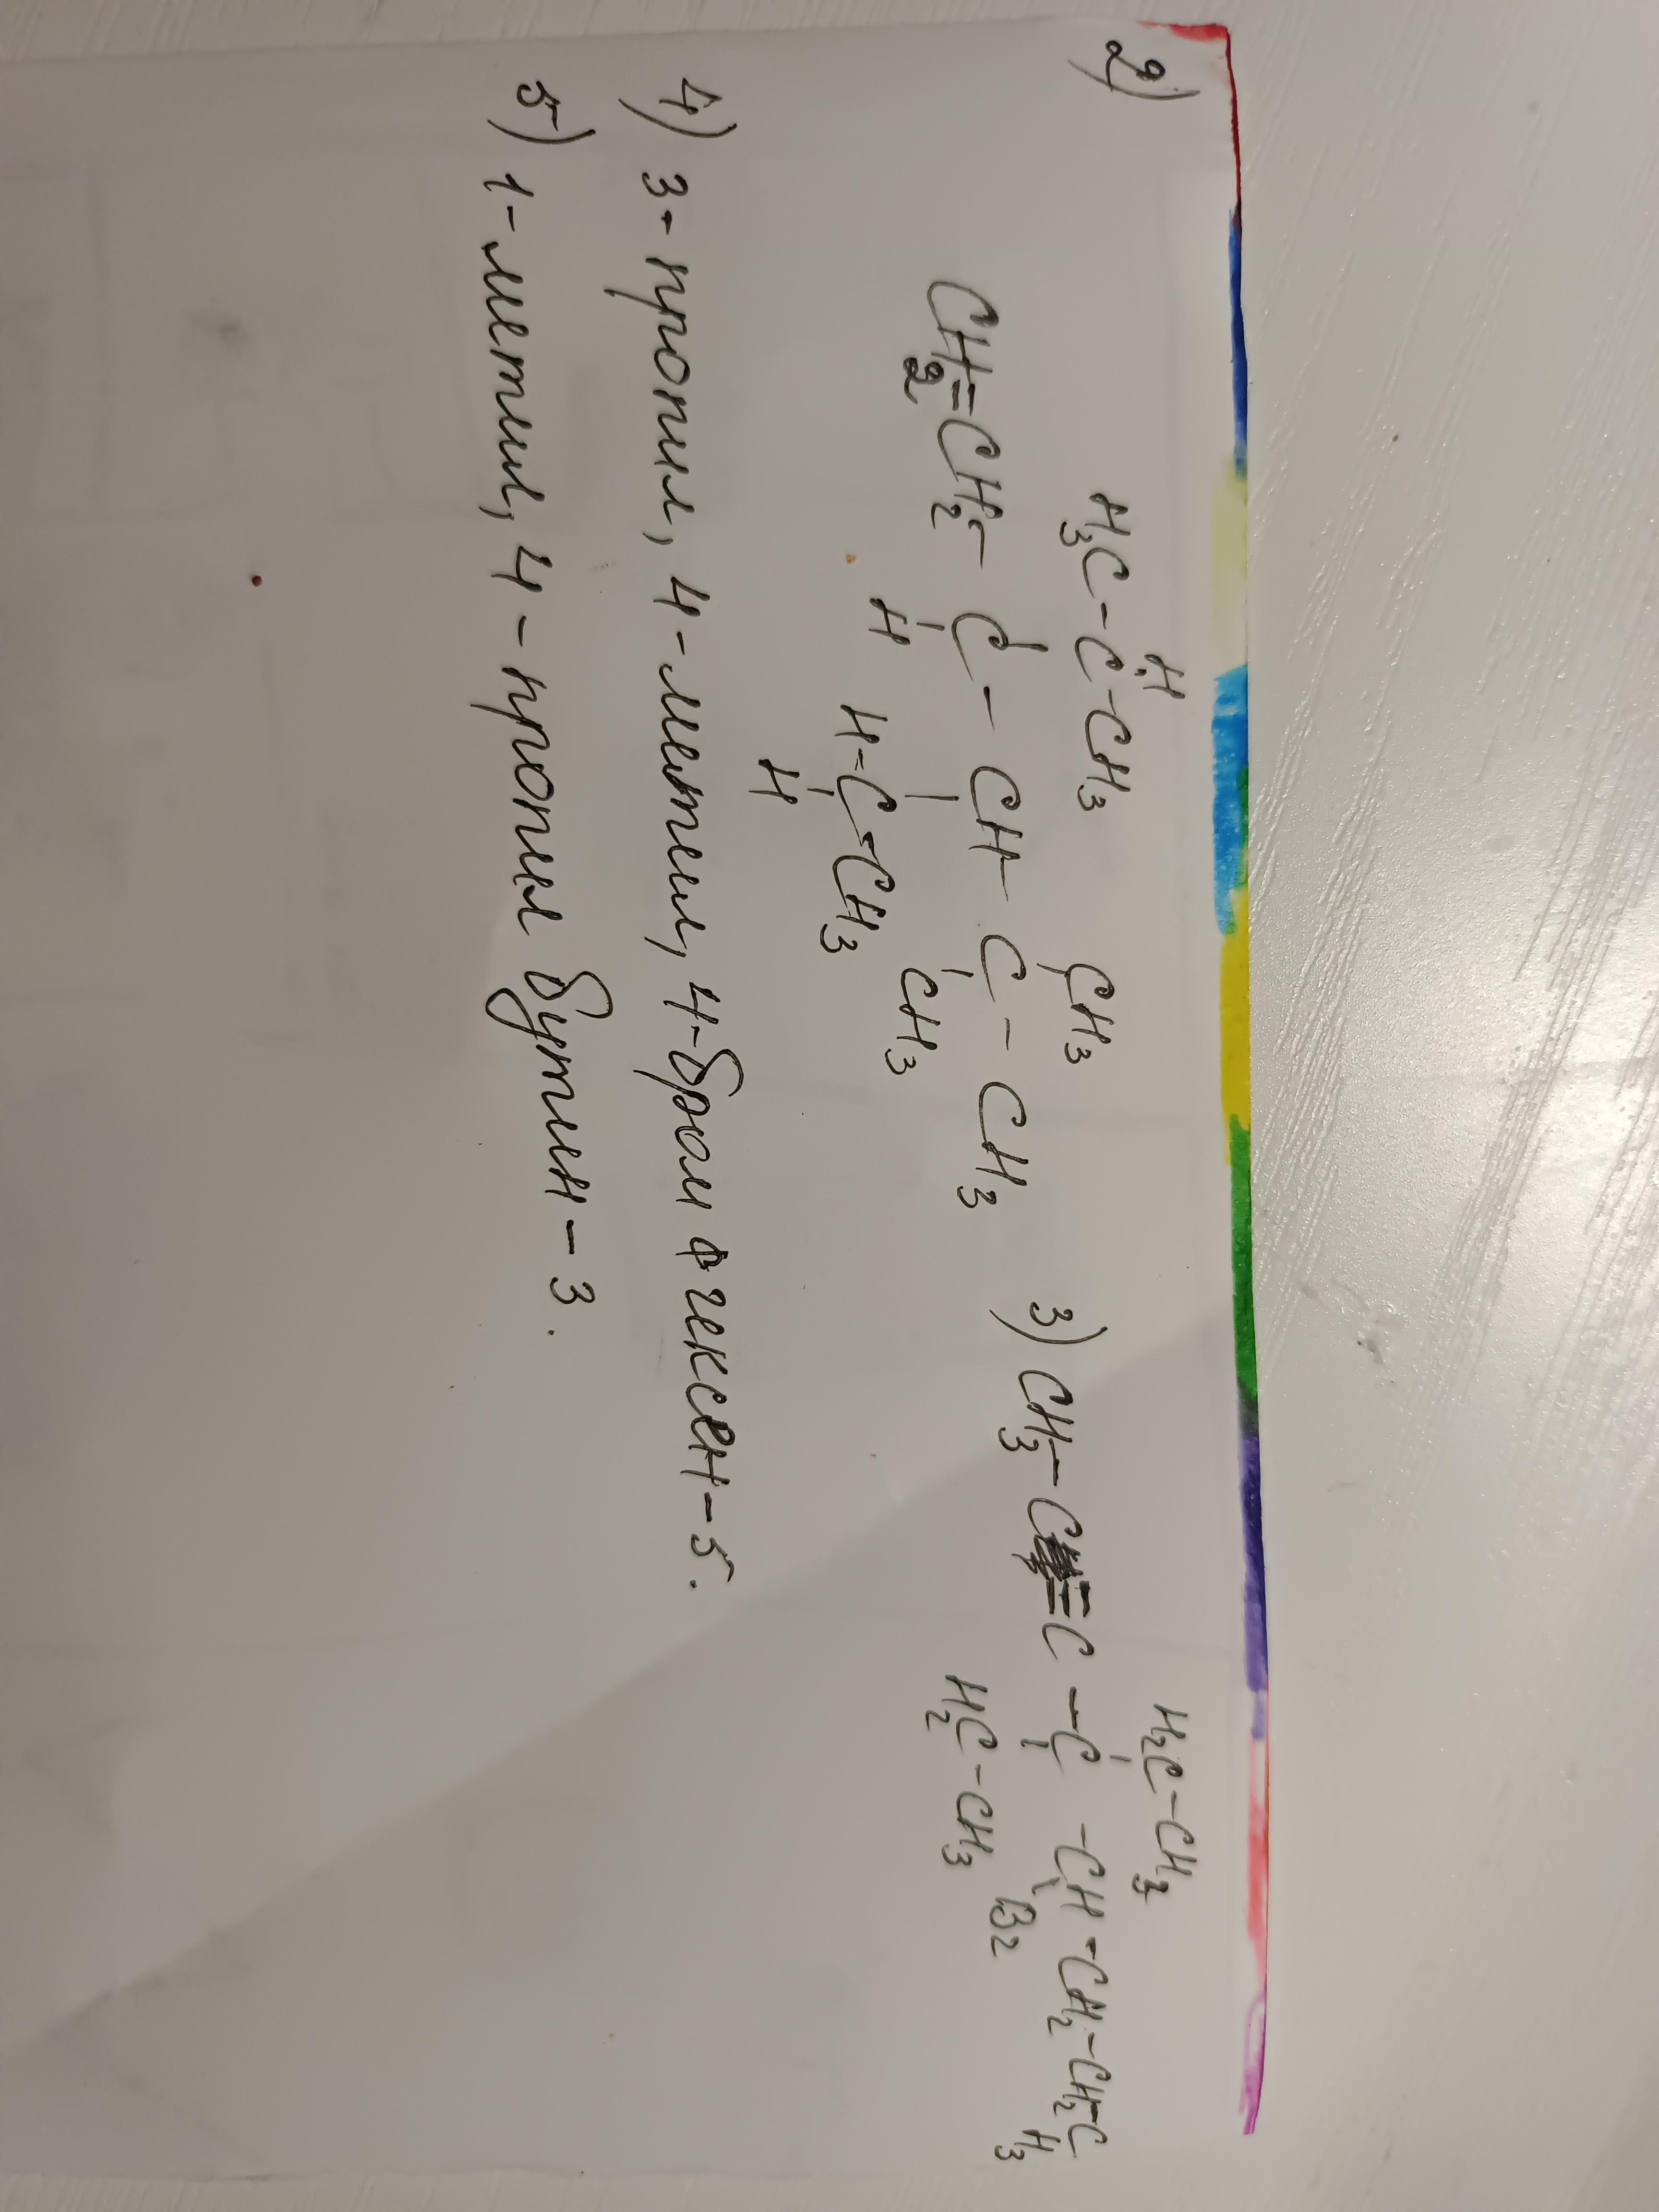 2)
H
H₃C-C-CH₃ CH₃
CH₂=CH₂-C-CH-C-CH₃
H CH₃
H-C-CH₃
H
H₂C-CH₃
3) CH₃-C≡C-C-CH-CH₂-CH₂-CH₃
Br
H₂C-CH₃
4) 3-пропил, 4-метил, 4-бром гексен-5.
5) 1-метил, 4-пропил бутин-3.